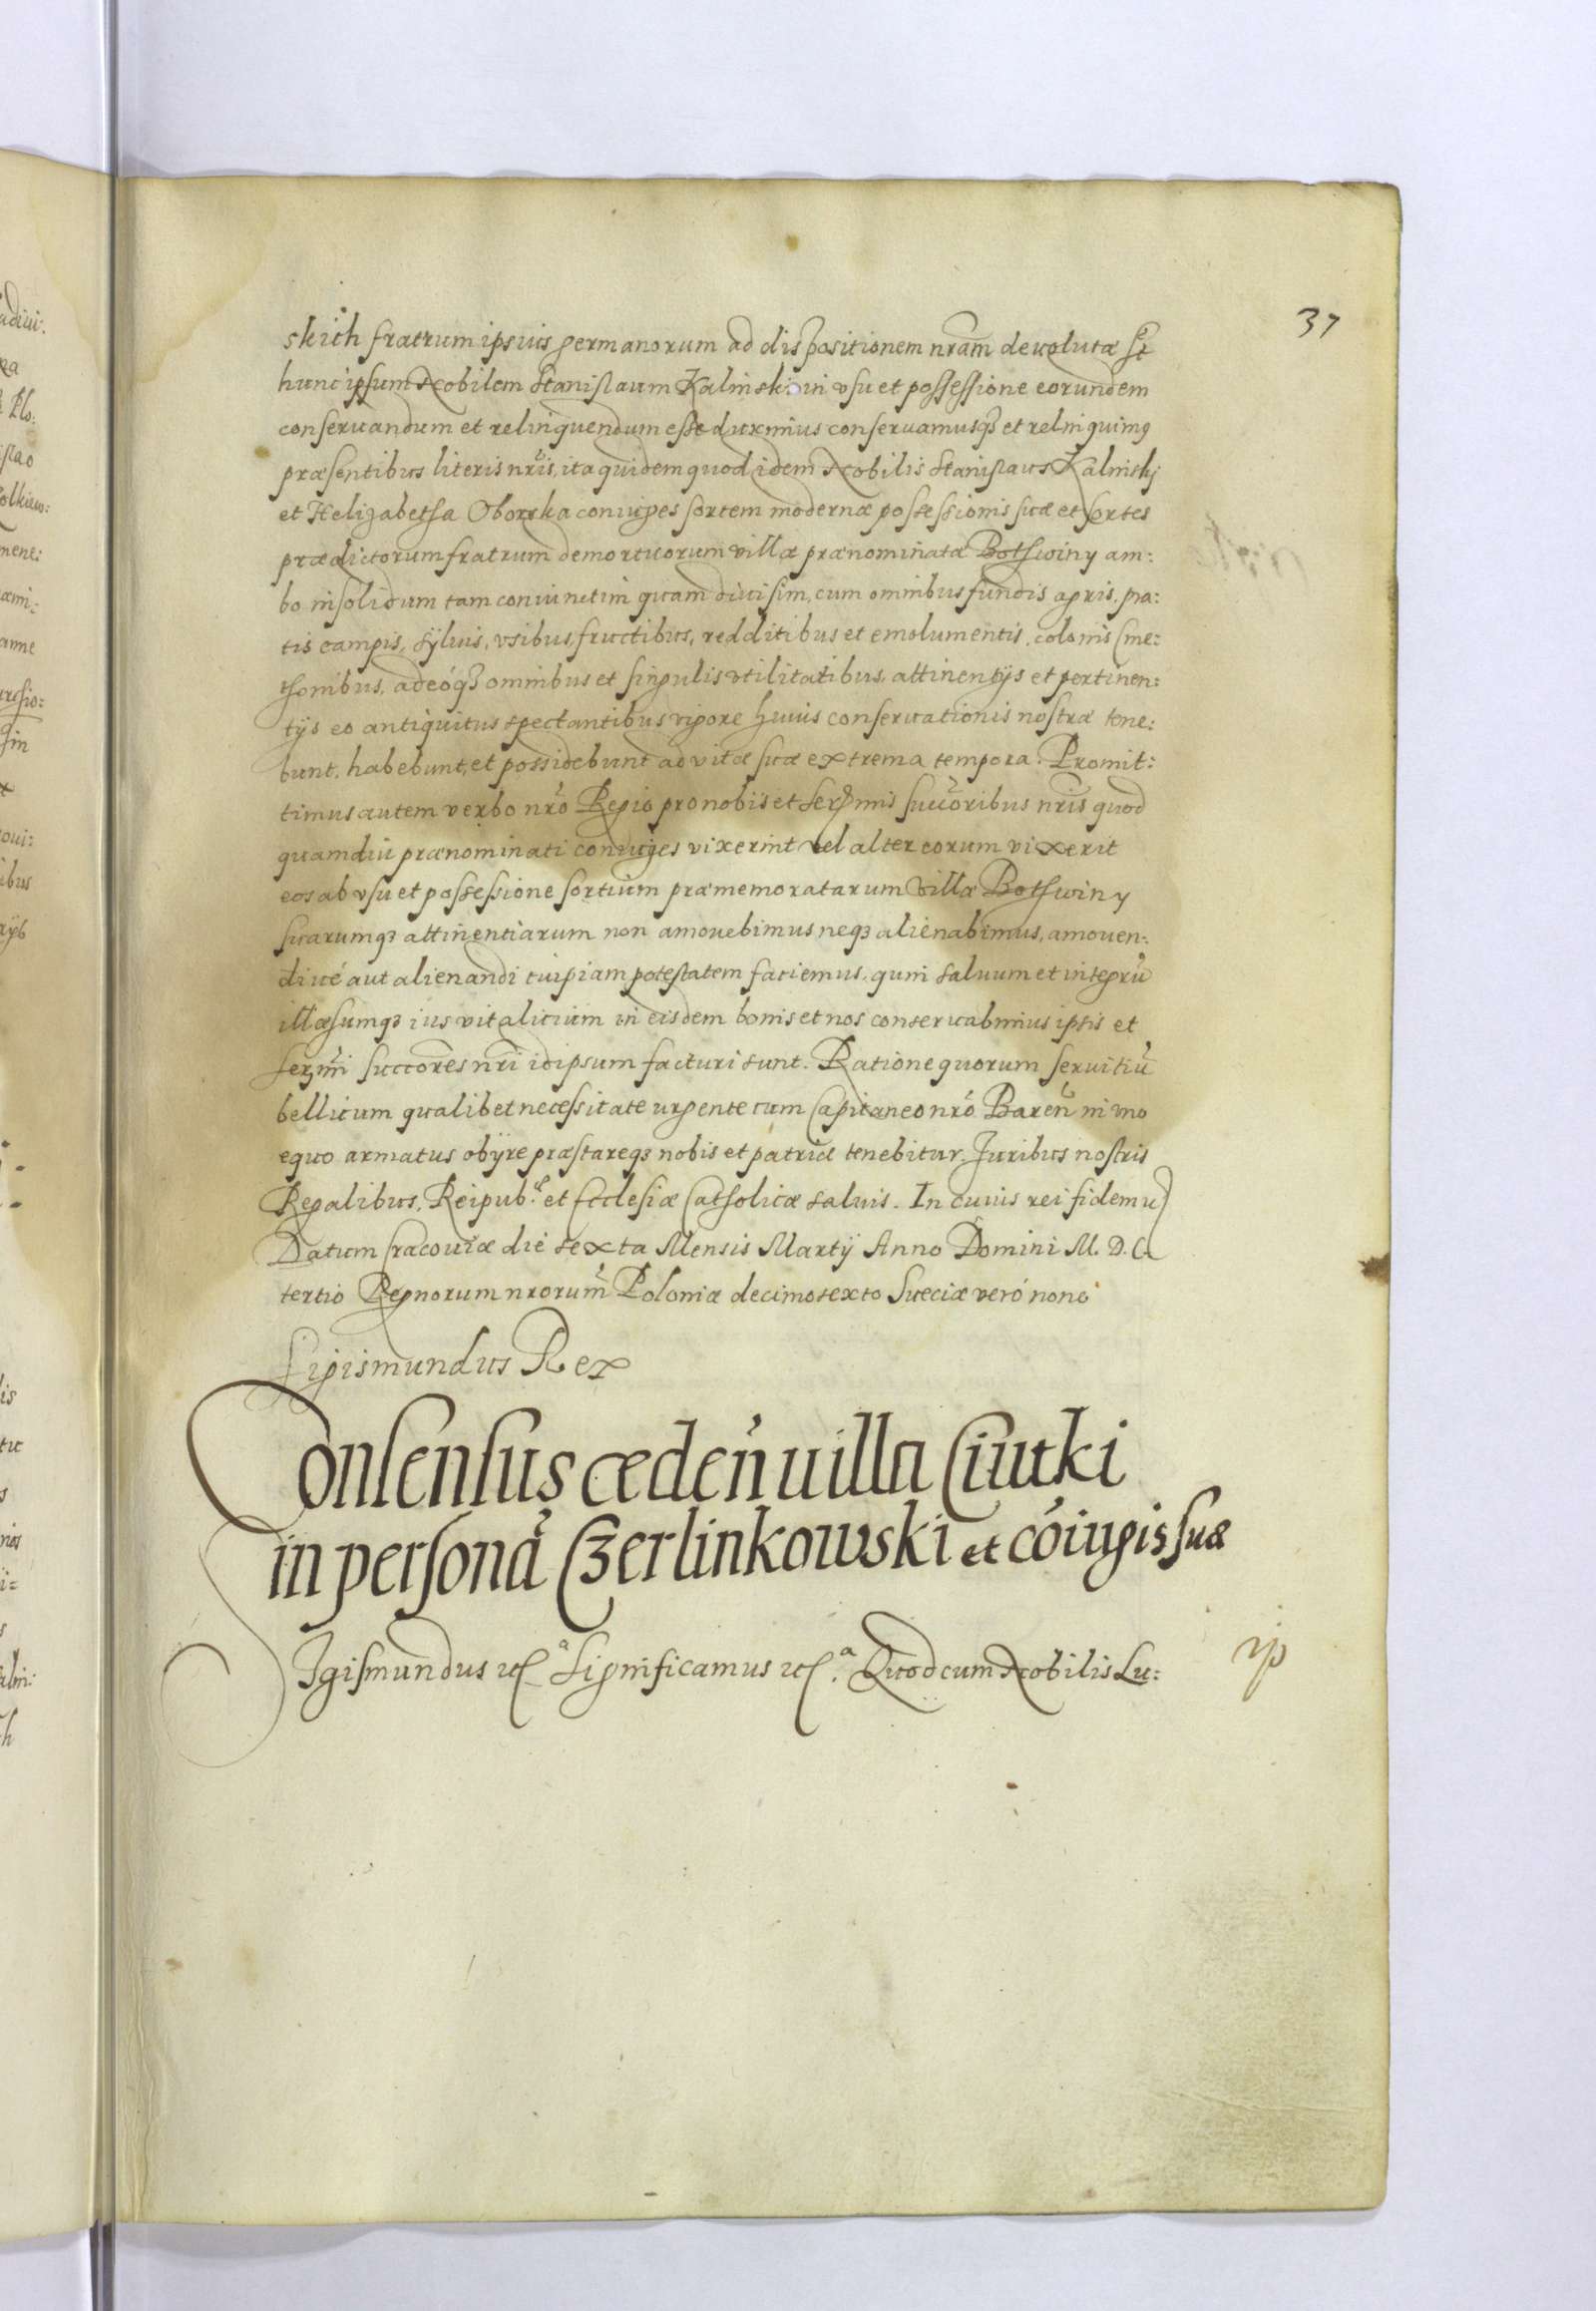 37
skich fratrum ipsius germanorum ad dispositionem nram devolutæ st
hunc ipsum Nobilem Stanislaum Kalinski in vsu et possessione eorundem
conservandum et relinquendum esse duximus conservamusq3 et relinquim9
præsentibus literis nris, ita quidem quod idem Nobilis Stanislaus Kalinskj
et Helizabetha Oborska coniuges sortem modernæ possessionis suæ et sortes
prædictorum fratrum demortuorum villæ prænominatæ Bothwiny am:
bo insolidum tam coniunctim quam divisim, cum omnibus fundis agris, pra:
tis campis, sÿluis, vsibus, fructibus, redditibus et emolumentis, colonis Cme:
thonibus, adeóq3 omnibus et singulis vtilitatibus, attinentijs et pertinen:
tijs eo antiquitus spectantibus vigore huius conservationis nostræ tene:
bunt, habebunt, et possidebunt ad vitæ suæ extrema tempora. Promit:
timus autem verbo nro Regio pro nobis et Sermis succoribus nris quod
quamdiu prænominati coniuges vixerint vel alter eorum vixerit
eos ab vsu et possessione sortium præmemoratarum villæ Bothwiny
suarumq3 attinentiarum non amovebimus neq3 alienabimus, amoven:
dive aut alienandi cuipiam potestatem faciemus, quin salvum et integrũ
illæsumq3 ius vitalicium in eisdem bonis et nos conservabimus ipsis et
sermi succores nri idipsum facturi sunt. Ratione quorum servitiũ
bellicum qualibet necessitate urgente cum Capitaneo nró Baren in vno
equo armatus obÿre præstareq3 nobis et patriæ tenebitur. Juribus nostris
Regalibus, Reipub. et Ecclesiæ Catholicæ salvis. In cuius rei fidem
Datum Cracoviæ die sexta Mensis Martÿ Anno Domini M. D. C.
tertio Regnorum nrorum Poloniæ decimosexto Sueciæ veró nono
Sigismundus Rex
Consensus cæden villa Ciutki
in personã Czerlinkowski et cóiugis suæ
Sigismundus Significamus Quod cum Nobilis Lu: